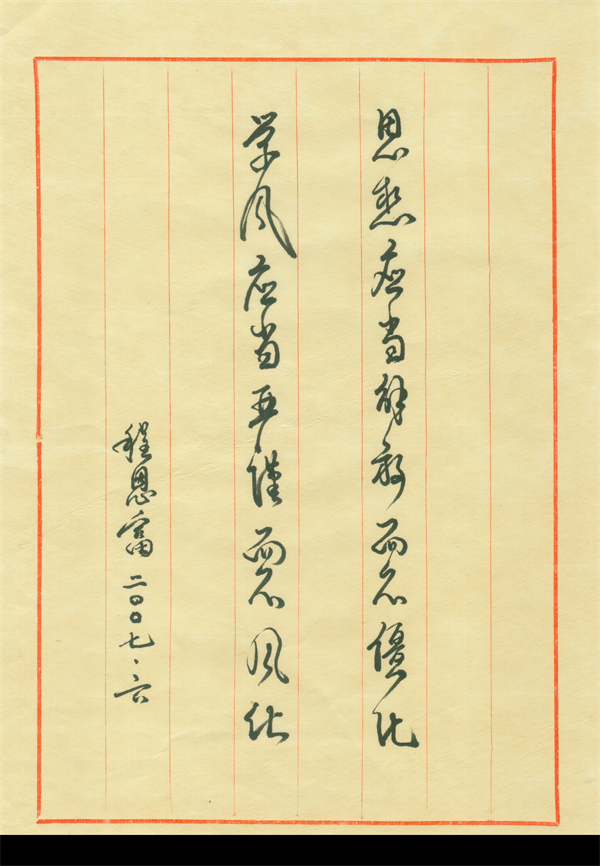 思想应当解放而不僵化
学风应当严谨而不风化
程恩富 二〇〇七.六